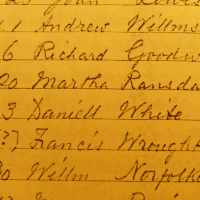 John Lewis
1 Andrew Willms
6 Richard Goodw
20 Martha Ransda
3 Daniell White
?7 Francis Wrought
30 Willm Norfolk